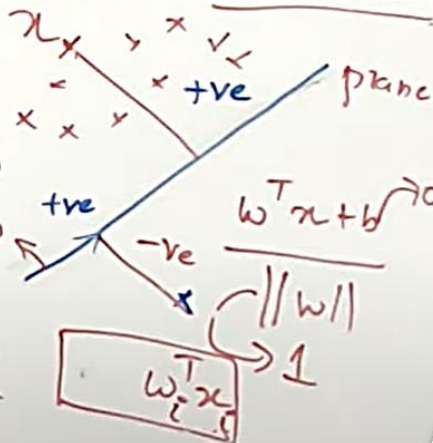 x
+ve
plane
+ve
-ve
w^T x + b → 0
||w||
→ 1
w_i^T x_i